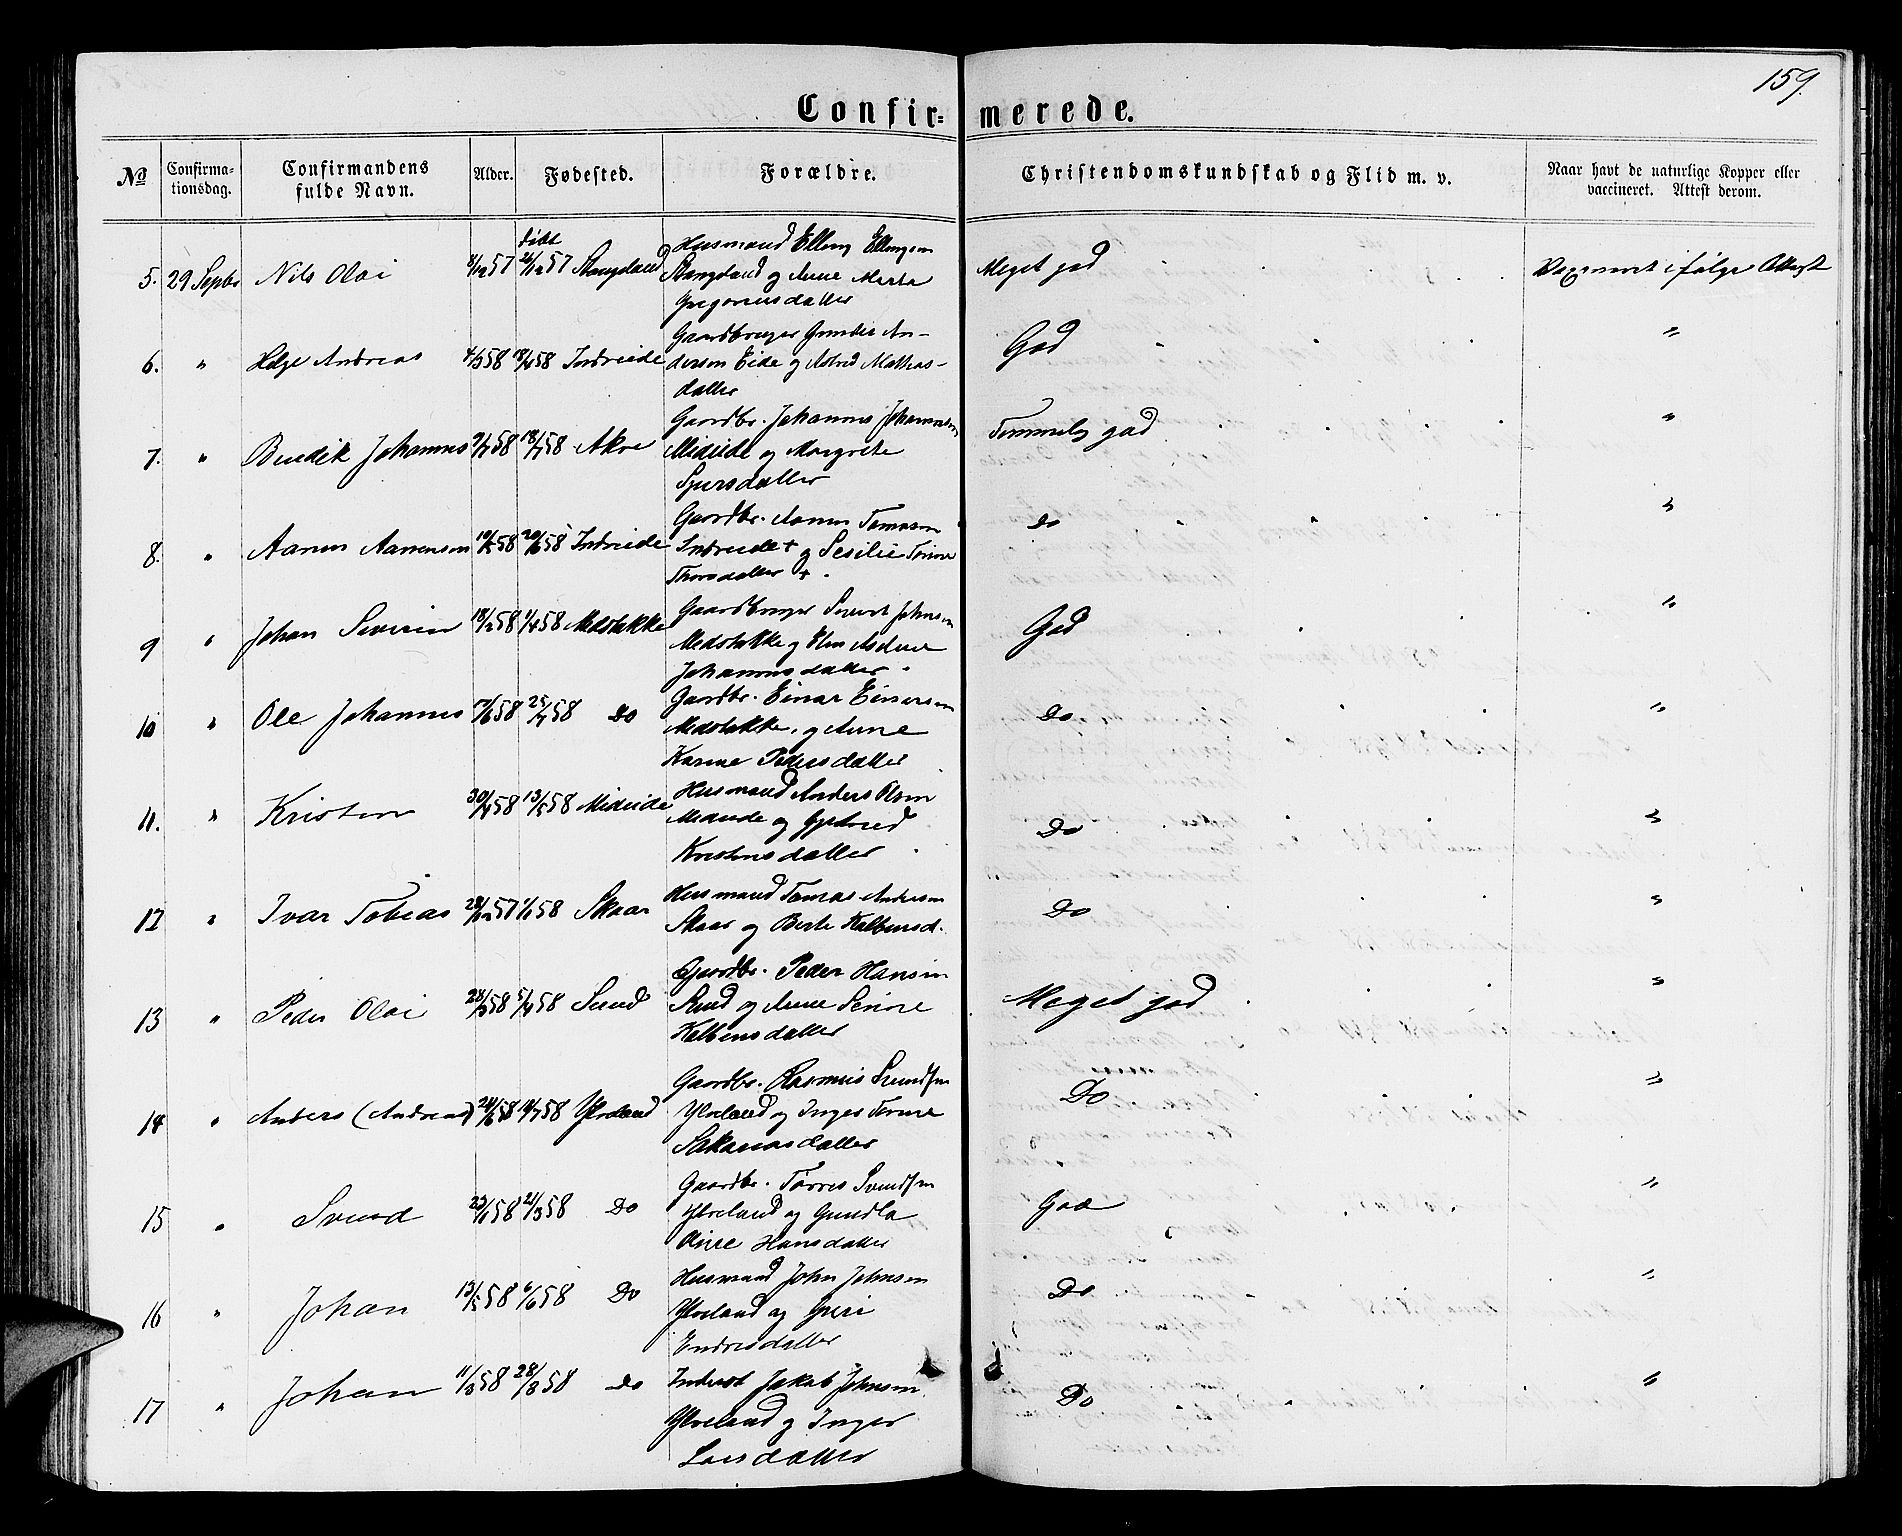 159.
Confir= merede.
No Confirma-tionsdag. Confirmandens fulde Navn. Alder. Fødested. Forældre. Christendomskundskab og Flid m. v. Naar havt de naturlige Kopper eller vaccineret. Attest derom.
døbt
5. 29 Septbr Nils Olai 8/12 57 26/12 57 Stangeland Husmand Elling Ellingsen Meget god Vaxineret i følge Attest
Stangeland og Anne Marta
Gregoriusdatter
6. " Helge Andreas 4/3 58 18/4 58 Indreeide Gaardbruger Gunder An- God "
dersen Eide og Astrid Mathias-
datter
7. " Bendik Johannes 9/7 58 18/7 58 Akre Gaardbr. Johannes Johannesen Temmelig god "
Mideide og Margrete
Sjursdatter
8. " Aanen Aanensen 10/5 58 20/6 58 Indreeide Gaardbr. Aanen Tomasen Do "
Indreeide + og Sesilie Torine
Thorsdatter +
9 " Johan Severin 18/2 58 1/4 58 Medstøkke Gaardbruger Sivert Johnsen God "
Medstøkke og Elen
Johannesdatter
10 " Ole Johannes 17/6 58 25/7 58 Do Gardbr. Einar Einersen Do "
Medstøkke, og Anne
Karine Pedersdatter
11. " Kristen 30/4 58 13/5 58 Mideide Husmand Anders Olsen Do "
Mideide og Gjertrud
Kristensdatter
12 " Ivar Tobias 28/12 57 1/1 58 Skaar Husmand Tomas Andersen Do "
Skaar og Berte Kolbensd.
13 " Peder Olai 28/3 58 5/4 58 Sund Gaardbr. Peder Hansen Meget god "
Sund og Anne Serine
Kolbensdatter
14 " Anders (Andreas) 24/6 58 11/7 58 Ytreland Gaardbr. Rasmus Svendsen Do "
Ytreland og Inger Torine
Sakariasdatter
15 " Svend 23/1 58 21/3 58 Do Gaardbr. Tørres Svendsen God "
Ytreland og Gundla
Oline Hansdatter
16 " Johan 13/5 58 6/6 58 Do Husmand John Johnsen Do "
Ytreland og Guri
Endresdatter
17 " Johan 11/8 58 28/8 58 Do Inderst Jakob Johnsen Do "
Ytreland og Inger
Larsdatter